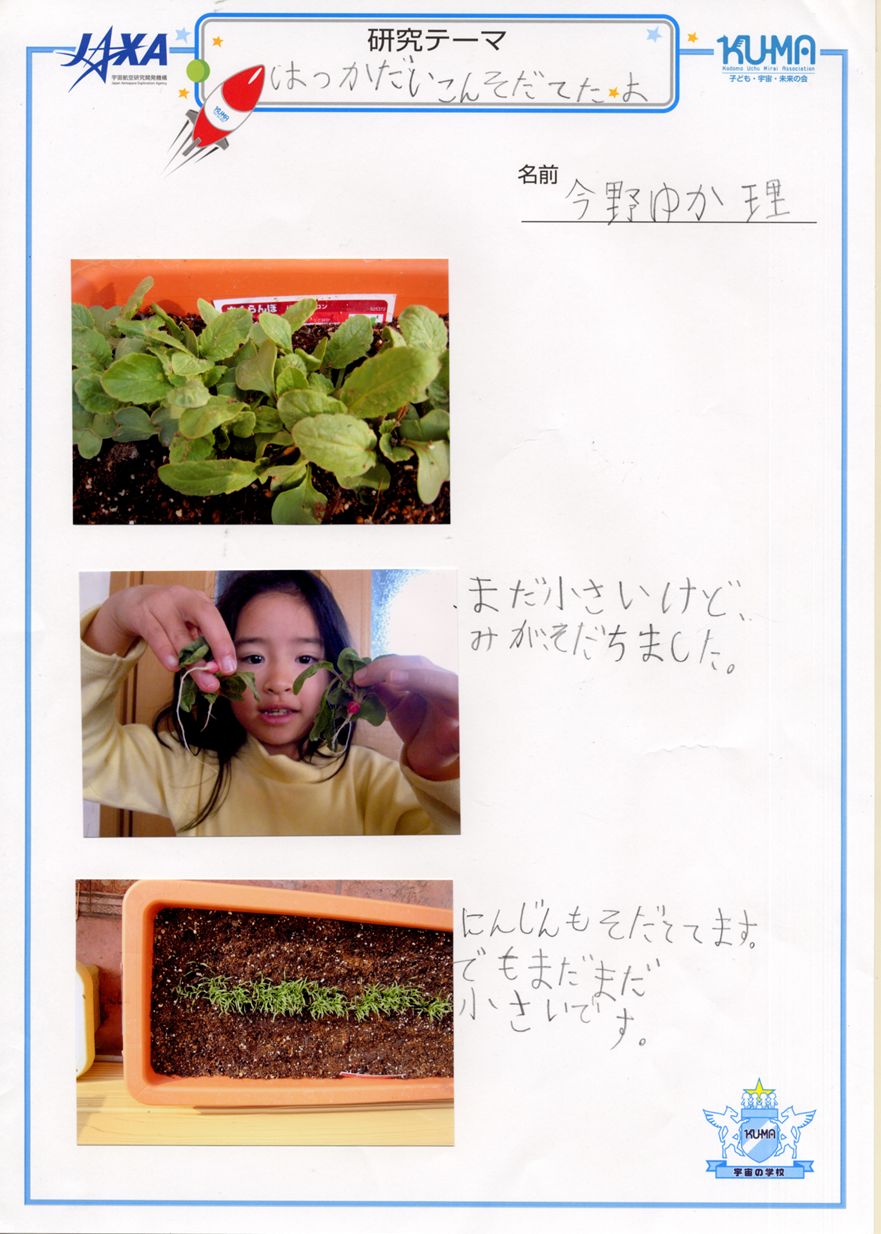 JAXA
宇宙航空研究開発機構
Japan Aerospace Exploration Agency
研究テーマ
はつかだいこんそだてたよ
KU-MA
Kodomo Uchu Mirai Association
子ども・宇宙・未来の会
KU-MA
名前 今野ゆか理
さくらんぼ
まだ小さいけど、
みがそだちました。
にんじんもそだててます。
でもまだまだ
小さいです。
KU-MA
宇宙の学校